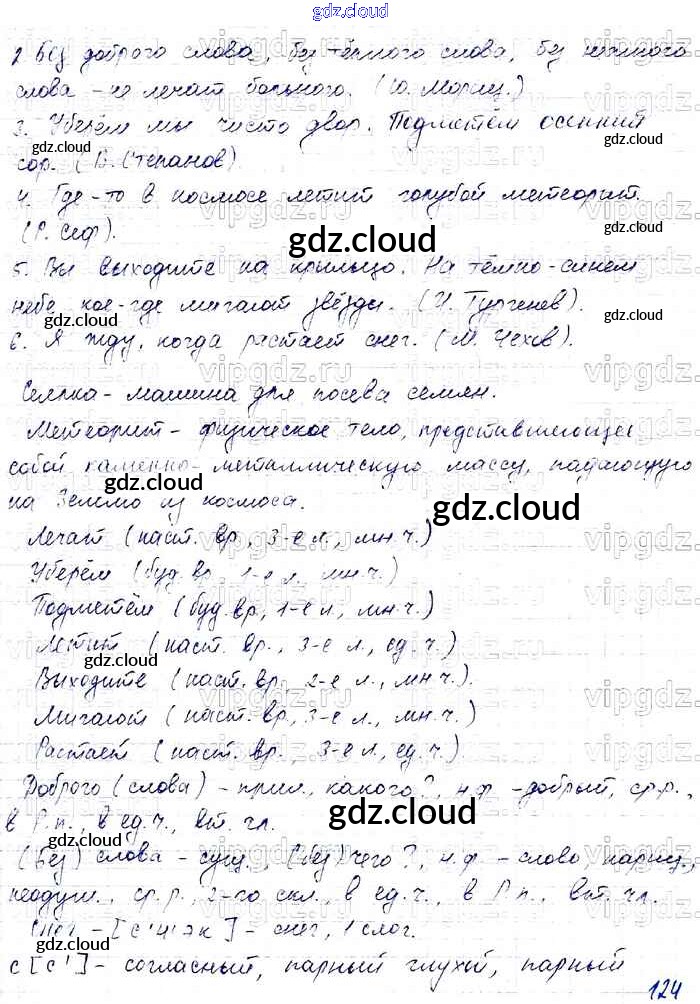 gdz.cloud
2. Без доброго слова, без тёплого слова, без нежного
слова – не лечат больного. (Ю. Мориц.)
3. Уберём мы чисто двор. Подметём осенний
сор. (В. Степанов)
4. Где-то в космосе летит голубой метеорит.
(Р. Сеф).
5. Вы выходите на крыльцо. На тёмно-синем
небе кое-где мигают звёзды. (И. Тургенев).
6. Я жду, когда растает снег. (М. Чехов).
Сеялка – машина для посева семян.
Метеорит – физическое тело, представляющее
собой каменно-металлическую массу, падающую
на Землю из космоса.
Лечат (наст. вр., 3-е л., мн.ч.)
Уберём (буд. вр., 1-е л., мн.ч.)
Подметём (буд.вр, 1-е л, мн.ч.)
Летит (наст. вр., 3-е л., ед.ч.)
Выходите (наст. вр., 2-е л., мн.ч.).
Мигают (наст. вр., 3-е л., мн.ч.)
Растает (наст. вр., 3-е л., ед.ч.)
Доброго (слова) – прил., какого?, н.ф – добрый, ср.р.,
в Р.п., в ед.ч., вт. чл.
(Без) слова – сущ., (без) чего?, н.ф – слово нариц.,
неодуш., ср.р., 2-го скл., в ед.ч., в Р.п., вт. чл.
Снег – [с'н'эк] – снег, 1 слог.
с [с'] – согласный, парный глухой, парный
124